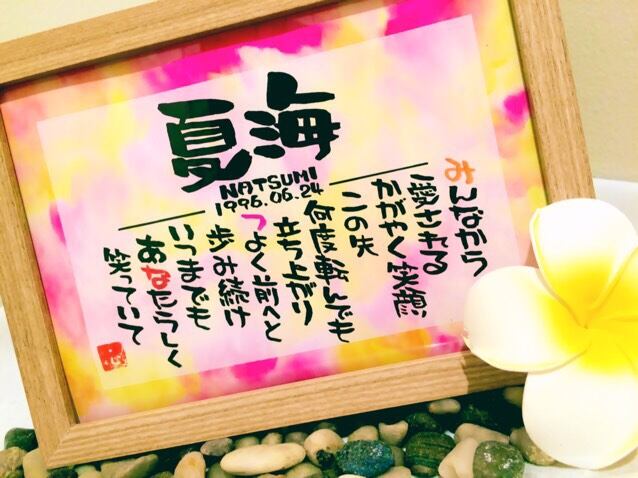 夏海
NATSUMI
1996.06.24
みんなから
愛される
かがやく笑顔
この先
何度転んでも
立ち上がり
つよく前へと
歩み続け
いつまでも
あなたらしく
笑っていて